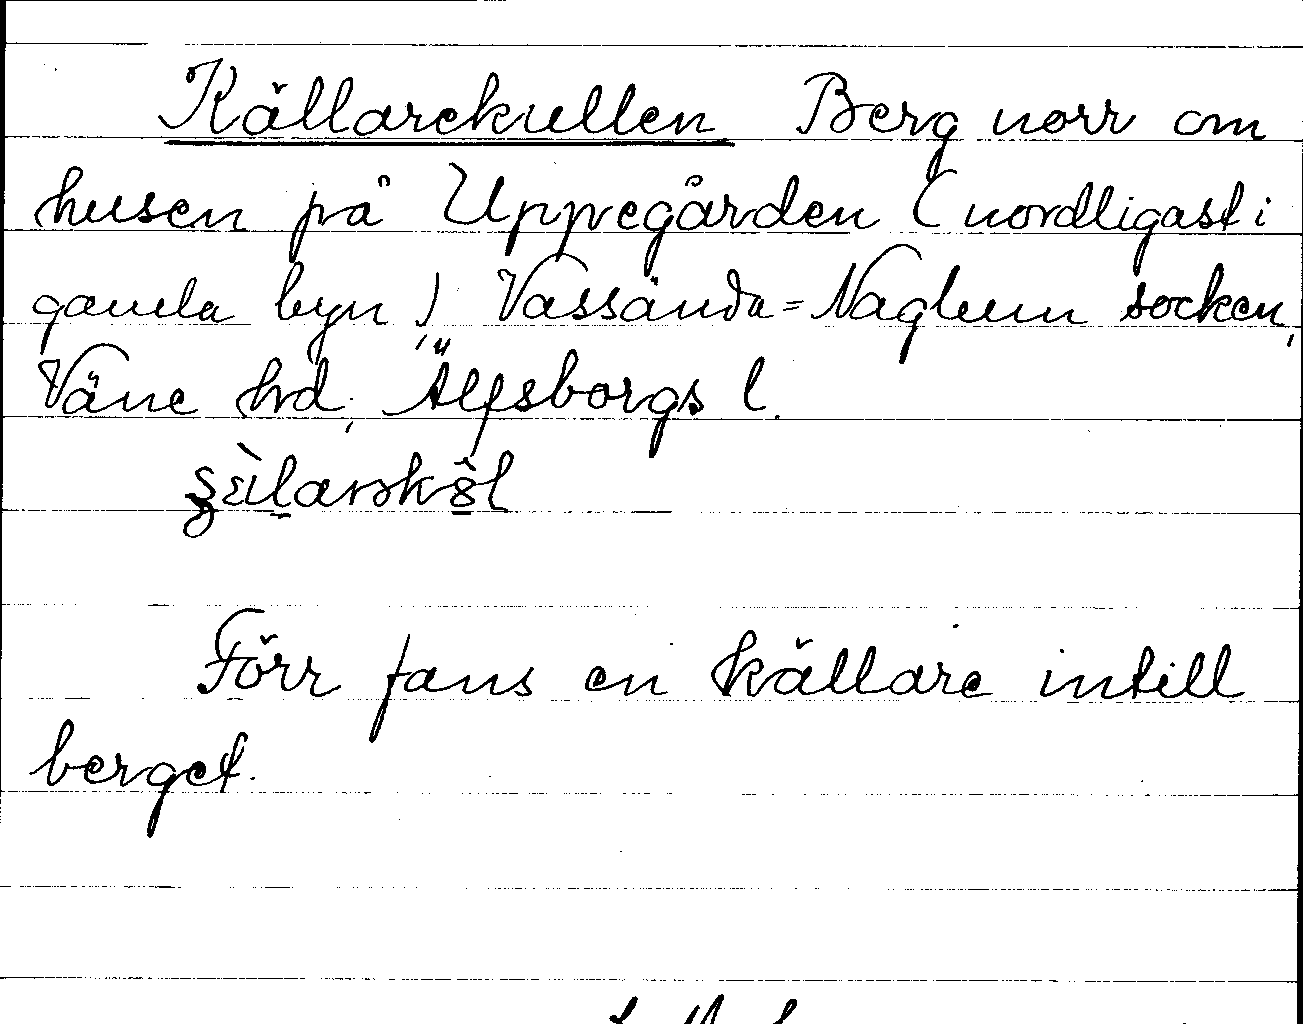 Källarekullen Berg norr om
husen på Uppegården (nordligast i
gamla byn) Vassända-Naglum socken,
Väne hd, Älfsborgs l.
Förr fans en källare intill
berget.